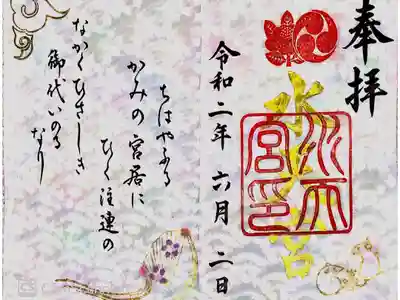 奉拝
水天宮
水天宮印
令和二年 六月 二日
ちはやふる
かみの宮居に
ひく注連の
なかくひさしき
御代いのる
なり